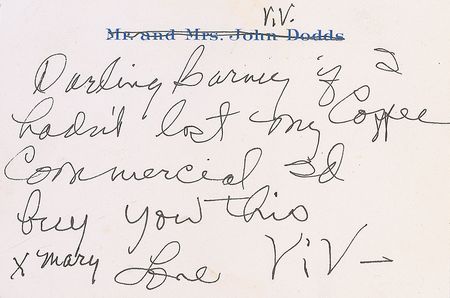 ViV.
Mr. and Mrs. John Dodds
Darling Barney if I
hadn't lost my Coffee
Commercial I'd
buy you this
x Mary Love ViV-